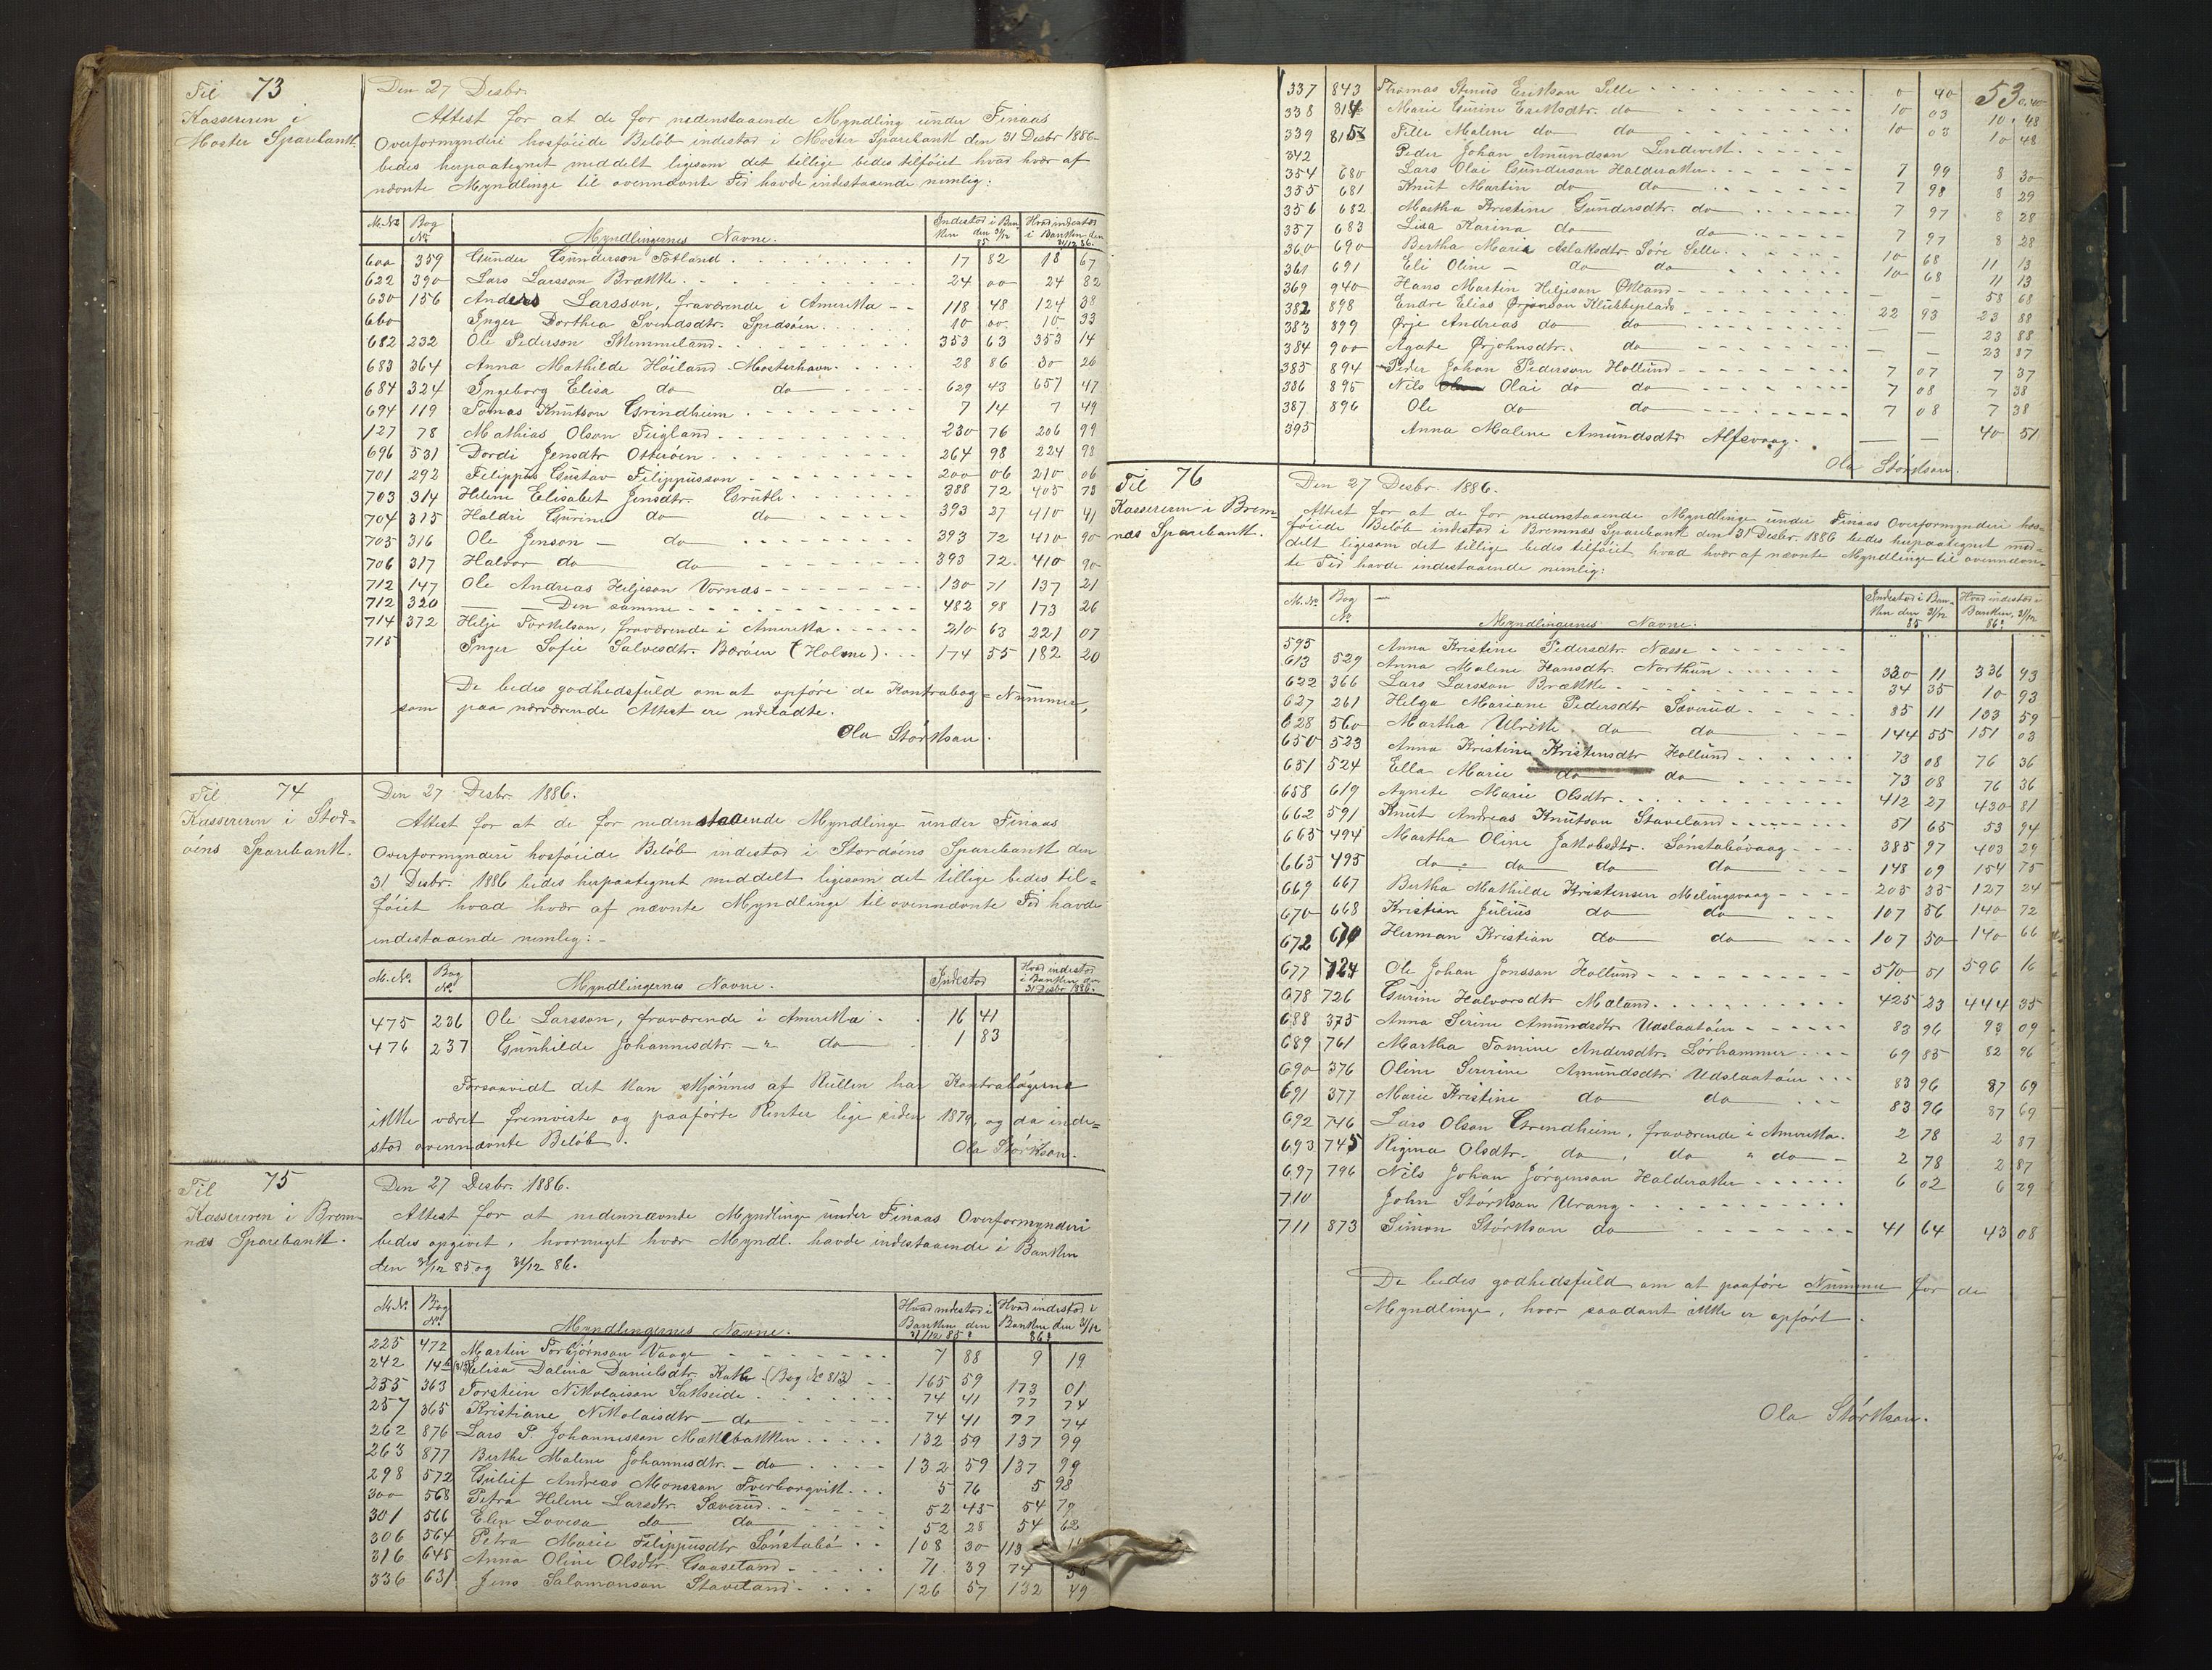 Til 73
Kassereren i
Moster Sparebank.
Den 27 Desbr.
Attest for at de for nedenstaaende Myndling under Finaas
Overformynderi hosføiede Beløb indestod i Moster Sparebank den 31 Desbr 1886
bedes herpaategnet meddelt ligesom det tillige bedes tilføiet hvad hvær af
nævnte Myndlinge til ovennævnte Tid havde indestaaende nemlig:
M.No Bog No. Myndlingernes Navne. Indestod i Banken den 31/12 85 Hvad indestod i Banken den 31/12 86.
600 359 Gunder Gunderson Totland 17 82 18 67
622 390 Lars Larsson Brække 24 00 24 82
630 156 Anders Larsson, fraværende i Amerikka 118 48 124 38
660 Inger Dorthea Svendsdtr. Spidsøen 10 00 10 33
682 232 Ole Pederson Skimmeland 353 63 353 14
683 364 Anna Mathilde Høiland Mosterhavn 28 86 30 26
684 324 Ingeborg Elisa do do 629 43 657 47
694 119 Tomas Knutson Grindheim 7 14 7 49
127 78 Mathias Olson Fugland 230 76 206 99
696 531 Dordi Jensdtr Otterøen 264 98 224 98
701 292 Filippus Gustav Filippusson 200 06 210 06
703 314 Helene Elisabet Jensdtr. Grutle 388 72 405 78
704 315 Haldri Gurine do do 393 27 410 41
705 316 Ole Jenson do 393 72 410 90
706 317 Halvor do do 393 72 410 90
712 147 Ole Andreas Heljeson Vornæs 130 71 137 21
712 320 Den samme 482 98 173 26
714 372 Helje Torkelson, fraværende i Amerikka 210 63 221 07
715 Inger Sofie Salvesdtr. Børøen (Holme) 174 55 182 20
De bedes godhedsfuld om at opføre de Kontrabog-Nummer,
som paa nærværende Attest ere udeladte.
Ola Størkson.
Til 74
Kassereren i Stord-
øens Sparebank.
Den 27 Desbr. 1886.
Attest for at de for nedenstaaende Myndlinge under Finaas
Overformynderi hosføiede Beløb indestod i Stordøens Sparebank den
31 Desbr. 1886 bedes herpaategnet meddelt ligesom det tillige bedes til-
føiet hvad hvær af nævnte Myndlinge til ovennævnte Tid havde
indestaaende nemlig:
M.No. Bog No. Myndlingernes Navne. Indestod Hvad indestod i Banken den 31 Desbr 1886.
475 236 Ole Larsson, fraværende i Amerikka 16 41
476 237 Gunhilde Johannesdtr. — " do 1 83
Forsaavidt det kan skjønnes af Rullen har Kontrabøgerne
ikke været fremviste og paaførte Renter lige siden 1879, og da inde-
stod ovennævnte Beløb.
Ola Størkson.
Til 75
Kassereren i Brem-
næs Sparebank.
Den 27 Desbr. 1886.
Attest for at nedennævnte Myndlinge under Finaas Overformynderi
bedes opgivet, hvormeget hvær Myndl. havde indestaaende i Banken
den 31/12 85 og 31/12 86.
M.No. Bog No. Myndlingernes Navne. Hvad indestod i Banken den 31/12 85? Hvad indestod i Banken den 31/12 86?
225 472 Martin Torbjørnson Vaage 7 88 9 19
242 Elisa Dalina Danielsdtr. (Bog No 813) 165 59 173 01
255 363 Torstein Nikolaison Sakseide 74 41 77 74
257 365 Kristiane Nikolaisdtr — do 74 41 77 74
262 876 Lars P. Johannesson Mæklebakken 132 59 137 99
263 877 Berthe Malene Johannesdtr. — do 132 59 137 99
298 572 Guleif Andreas Monsson Tverborgvik 5 76 5 98
300 568 Petra Helene Larsdtr. Sæverud 52 45 54 79
301 566 Elen Lovesa do do 52 28 54 62
306 564 Petra Marie Filippusdtr Sønstabø 108 30 113
316 645 Anna Oline Olsdtr. Gaaseland 71 39 74 58
336 631 Jens Salamonson Staveland 126 57 132 49
53
337 843 Thomas Stenius Erikson Selle 0 40 0,40
338 814 Marie Gurine Eriksdtr. do 10 03 10.48
339 815 Tille Malene do do 10 03 10 48
342 Peder Johan Amundson Lindevik
354 680 Lars Olai Gunderson Halderaker 7 99 8 30
355 681 Knut Martin do do 7 98 8 29
356 682 Martha Kristine Gundersdtr. do 7 97 8 28
357 683 Lisa Karina do do 7 97 8 28
360 690 Bertha Maria Aslaksdtr. Søre Selle 10 68 11 13
361 691 Eli Oline — do do 10 68 11 13
369 940 Hans Martin Heljeson Økland — — 58 68
382 898 Endre Elias Ørjanson Klubbeplads 22 93 23 88
383 899 Ørje Andreas do do — — 23 88
384 900 Agate Ørjohnsdtr. do — — 23 87
385 894 Peder Johan Pederson Hollund 7 07 7 37
386 895 Nils Olai do do 7 08 7 38
387 896 Ole do do 7 08 7 38
395 Anna Malene Amundsdtr Alfsvaag. — — 40 51
Ola Størkson.
Til 76
Kassereren i Brem-
næs Sparebank.
Den 27 Desbr. 1886.
Attest for at de for nedenstaaende Myndlinge under Finaas Overformynderi hos-
føiede Beløb indestod i Bremnæs Sparebank den 31 Desbr. 1886 bedes herpaategnet med-
delt ligesom det tillige bedes tilføiet, hvad hvær af nævnte Myndlinge til ovennævn-
te Tid havde indestaaende nemlig:
M.No. Bog No Myndlingernes Navne. Indestod i Banken den 31/12 85 Hvad indestod i Banken, 31/12 86?
595 Anna Kristine Pedersdtr. Næsse
613 529 Anna Malene Hansdtr. Northun 320 11 336 93
622 366 Lars Larsson Brække 34 35 10 93
627 261 Helga Mariane Pedersdtr Sæverud 85 11 133 59
628 560 Martha Ulrikke do do 144 55 151 03
650 523 Anna Kristine Kristensdtr Hollund 73 08 76 36
651 524 Ella Marie do do 73 08 76 36
658 619 Agnete Marie Olsdtr. 412 27 430 81
662 591 Knut Andreas Knutson Staveland 51 65 53 94
665 494 Martha Oline Jakobsdtr. Sønstabøvaag 385 97 403 29
665 495 do do do do 148 09 154 75
669 667 Bertha Mathilde Kristensen Melingsvaag 205 35 127 24
670 668 Kristian Julius do do 107 56 140 72
672 670 Herman Kristian do do 107 50 140 66
677 724 Ole Johan Jonsson Hollund 570 51 596 16
678 726 Gurine Halvorsdtr Mæland 425 23 444 35
688 375 Anna Serine Amundsdtr Udslaatøen 83 96 93 09
689 761 Martha Tomine Andersdtr. Sørhammer 69 85 82 96
690 376 Oline Sererine Amundsdtr. Udslaatøen 83 96 87 69
691 377 Marie Kristine do do 83 96 87 69
692 746 Lars Olson Grendheim, fraværende i Amerikka. 2 78 2 87
693 745 Rigina Olsdtr. do, do " do 2 78 2 87
697 796 Nils Johan Jørgenson Halderaker 6 02 6 29
710 John Størkson Urang
711 873 Simon Størkson do 41 64 43 08
De bedes godhedsfuld om at paaføre Nummer for de
Myndlinge, hvor saadant ikke er opført.
Ola Størkson.